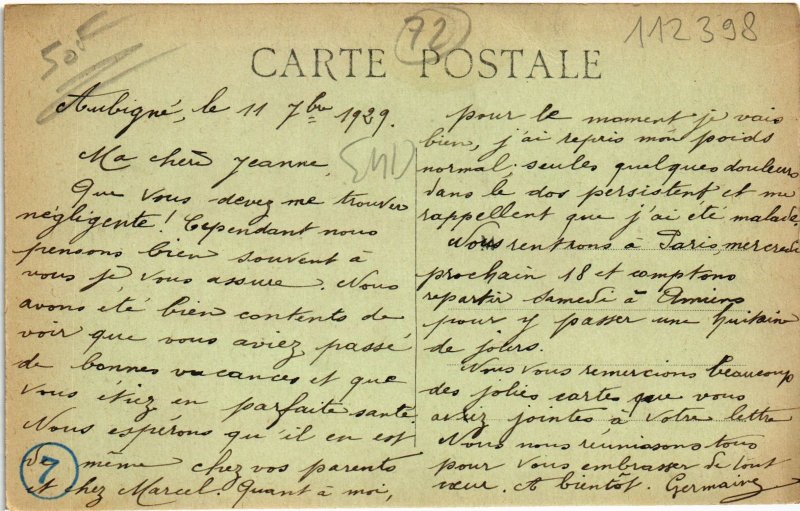 505
72
112398
CARTE POSTALE
Aubigné, le 11 7bre 1929.
Ma chère Jeanne,
Que vous devez me trouver
négligente! Cependant nous
pensons bien souvent à
vous je vous assure. Nous
avons été bien contents de
voir que vous aviez passé
de bonnes vacances et que
vous étiez en parfaite santé
Nous espérons qu'il en est
de même chez vos parents
et chez Marcel. Quant à moi,
7
pour le moment je vais
bien, j'ai repris mon poids
normal; seules quelques douleurs
dans le dos persistent et me
rappellent que j'ai été malade.
Nous rentrons à Paris, mercredi
prochain 18 et comptons
repartir samedi à Amiens
pour y passer une huitaine
de jours.
Nous vous remercions beaucoup
des jolies cartes que vous
aviez jointes à votre lettre
Nous nous réunissons tous
pour vous embrasser de tout
cœur. A bientôt. Germaine